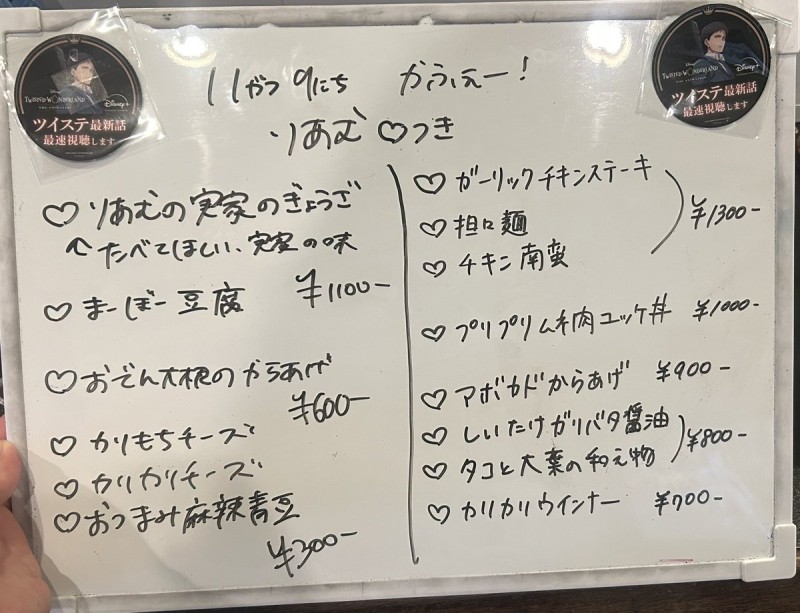 11がつ9にち かふぇー!
りあむ♡つき
TWISTED-WONDERLAND
THE ANIMATION
Disney+
ツイステ最新話
最速視聴します
TWISTED-WONDERLAND
THE ANIMATION
Disney+
ツイステ最新話
最速視聴します
♡りあむの実家のぎょうざ
↖たべてほしい、実家の味
♡まーぼー豆腐 ¥1100-
♡おでん大根のからあげ
¥600-
♡かりもちチーズ
♡カリカリチーズ
♡おつまみ麻辣青豆
¥300-
♡ガーリックチキンステーキ
♡担々麺
♡チキン南蛮
¥1300-
♡プリプリムネ肉ユッケ丼 ¥1000-
♡アボカドからあげ ¥900-
♡しいたけガリバタ醤油
♡タコと大葉の和え物
¥800-
♡カリカリウインナー ¥700-